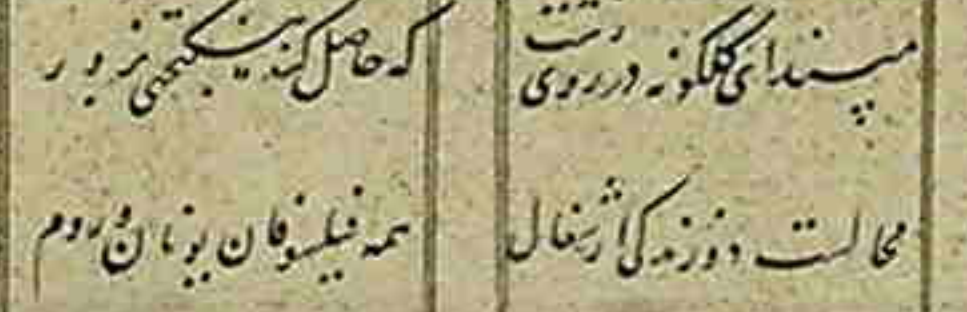 مپسندای گلگونه در روی زشت که حاصل کند نیکبختی بزور
محالست دوزندگی از شغال همه فیلسوفان یونان و روم